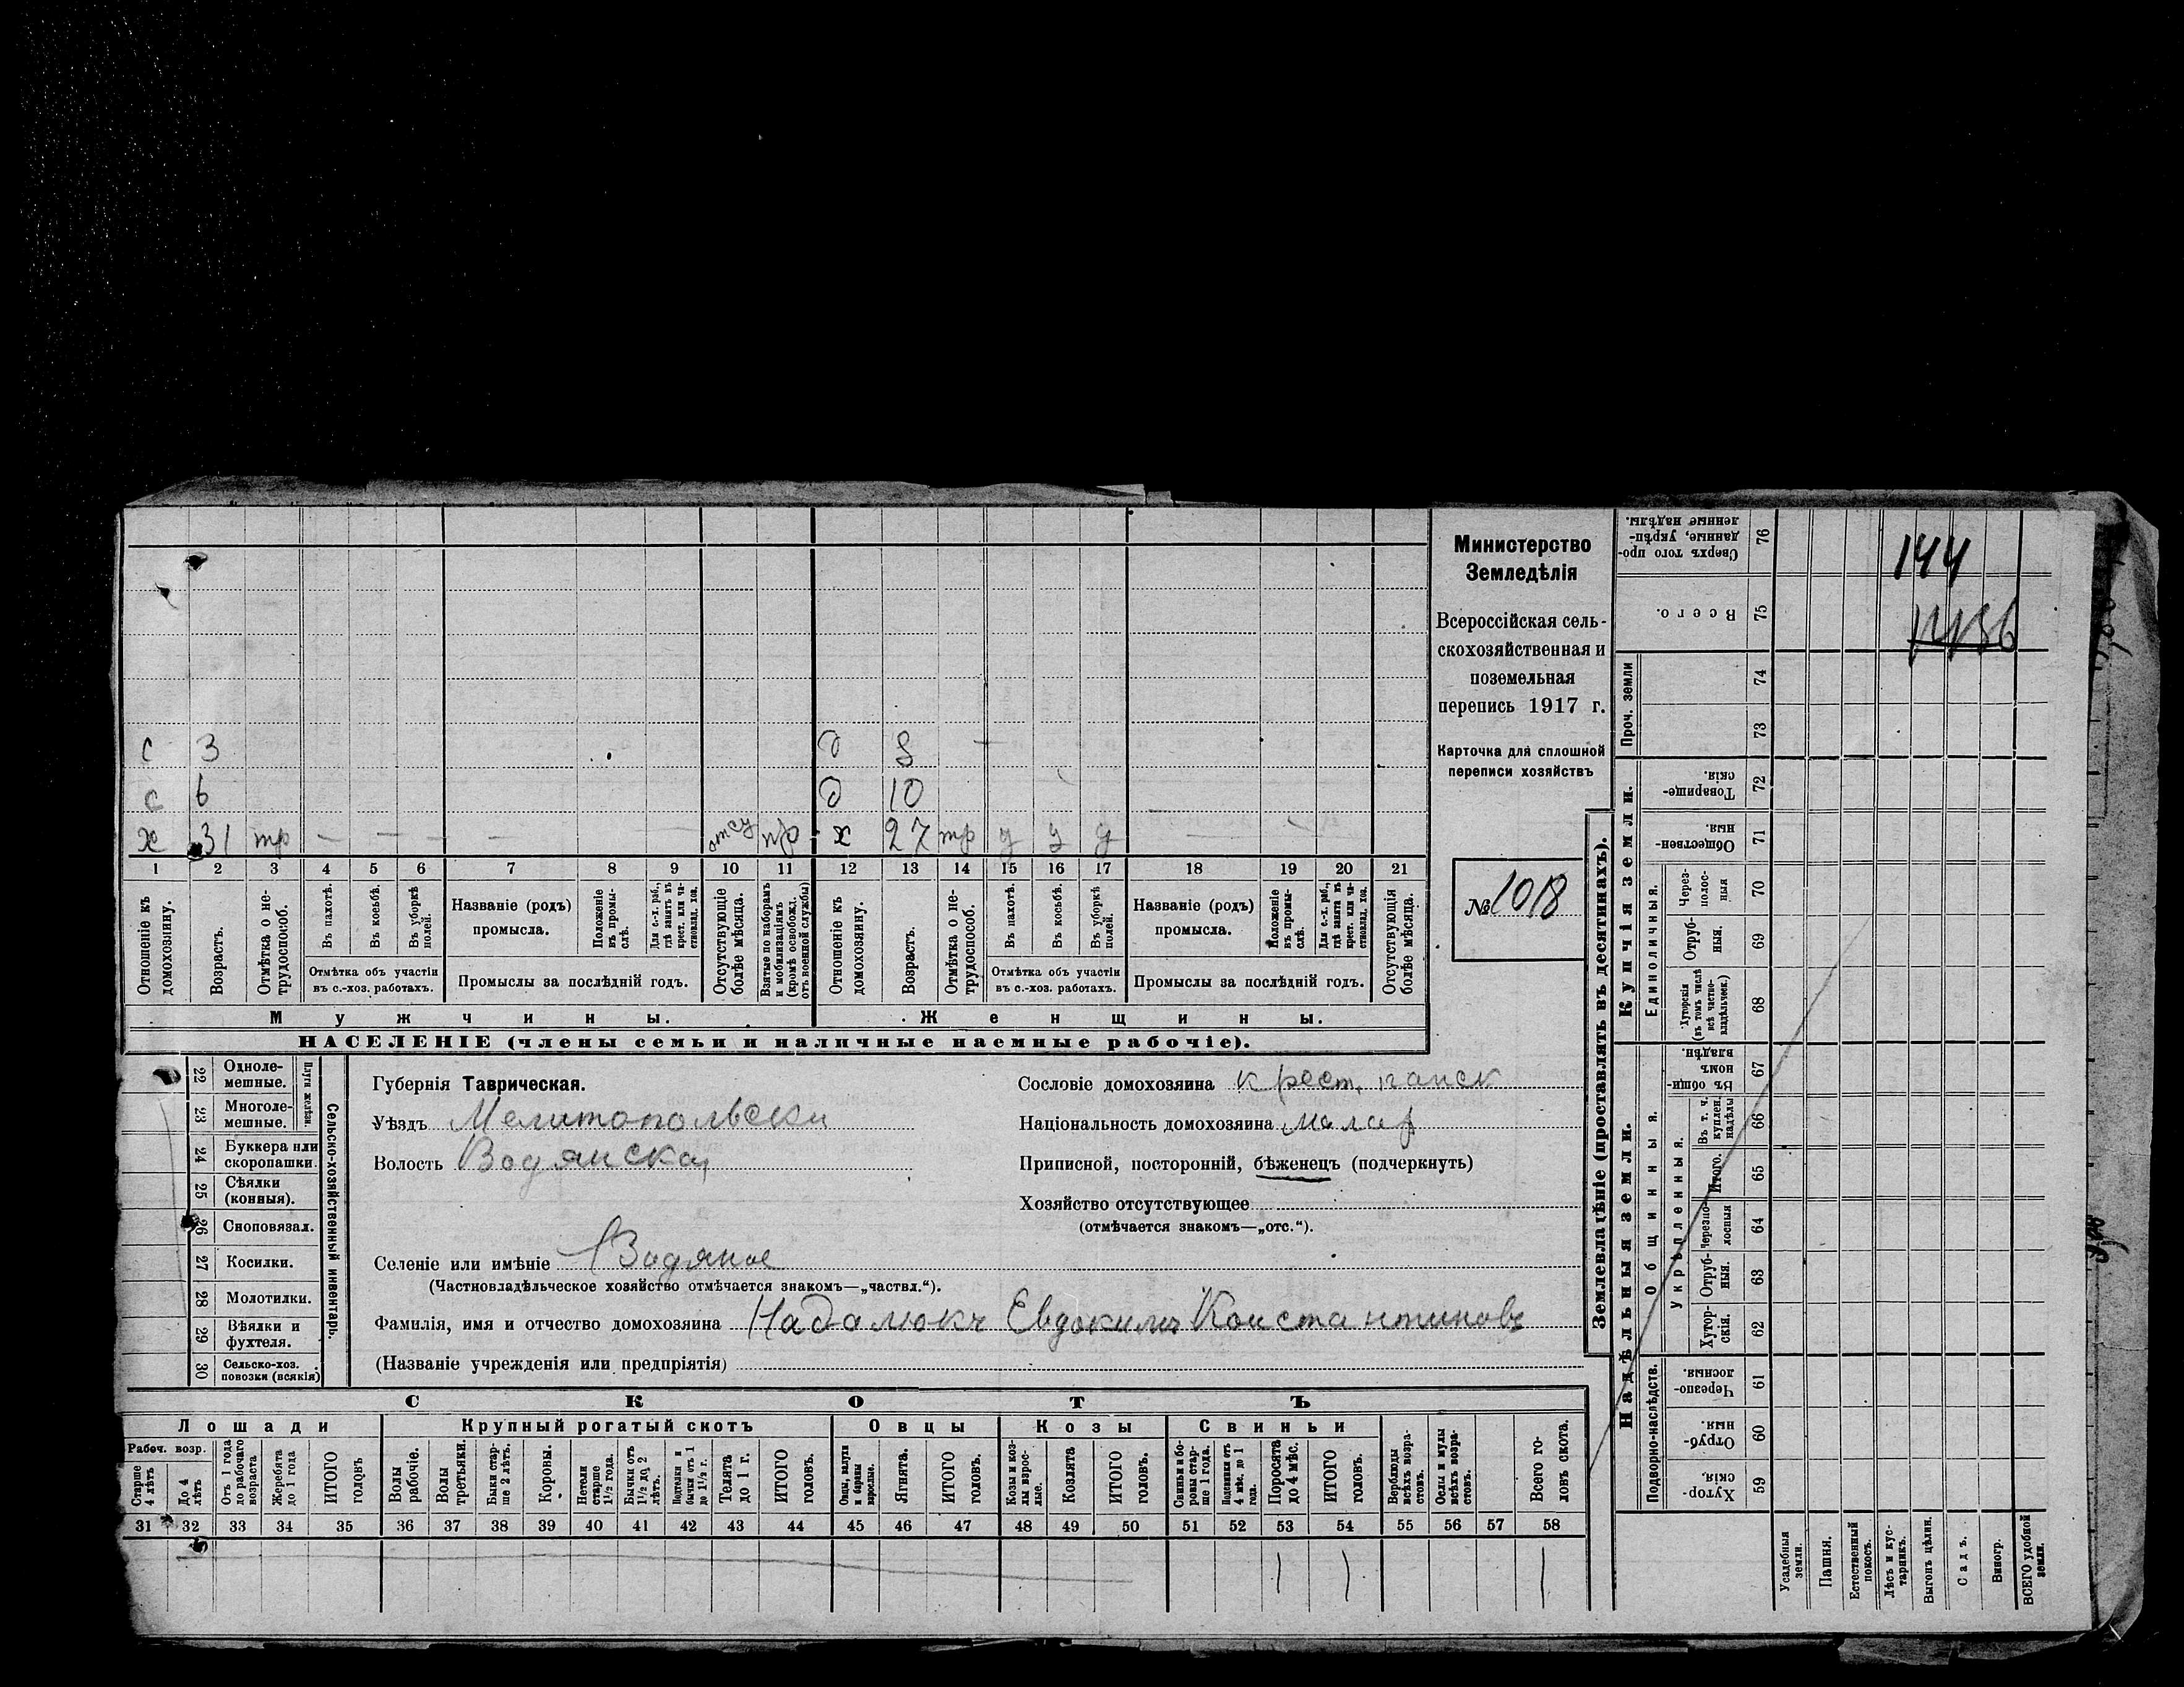 с 3 д 8
с 6 д 10
х 31 тр — — — — — отсу пр х 27 тр у у у —
1 2 3 4 5 6 7 8 9 10 11 12 13 14 15 16 17 18 19 20 21
Отношеніе къ домохозяину.
Возрастъ.
Отмѣтка о нетрудоспособ.
Въ пахотѣ.
Въ косьбѣ.
Въ уборкѣ полей.
Отмѣтка объ участіи
въ с.-хоз. работахъ.
Названіе (родъ)
промысла.
Положеніе въ промыслѣ.
Для с.-х. раб., гдѣ занятъ въ крест. или частновлад. хоз.
Промыслы за послѣдній годъ.
Отсутствующіе болѣе мѣсяца.
Взятые по наборамъ и мобилизаціямъ (кромѣ освобожд. отъ военной службы)
Отношеніе къ домохозяину.
Возрастъ.
Отмѣтка о нетрудоспособ.
Въ пахотѣ.
Въ косьбѣ.
Въ уборкѣ полей.
Отмѣтка объ участіи
въ с.-хоз. работахъ.
Названіе (родъ)
промысла.
Положеніе въ промыслѣ.
Для с.-х. раб., гдѣ занята въ крест. или частновлад. хоз.
Промыслы за послѣдній годъ.
Отсутствующія болѣе мѣсяца.
Мужчины. Женщины.
НАСЕЛЕНІЕ (члены семьи и наличные наемные рабочіе).
Министерство
Земледѣлія
Всероссійская сель-
скохозяйственная и
поземельная
перепись 1917 г.
Карточка для сплошной
переписи хозяйствъ
№ 1018
Сельско-хозяйственный инвентарь.
Плуги желѣзн.
22 Одноле-
мешные.
23 Многоле-
мешные.
24 Буккера или
скоропашки.
25 Сѣялки
(конныя).
26 Сноповязал.
27 Косилки.
28 Молотилки.
29 Вѣялки и
фухтеля.
30 Сельско-хоз.
повозки (всякія)
Губернія Таврическая.
Уѣздъ Мелитопольски
Волость Водянская
Селеніе или имѣніе Водяное
(Частновладѣльческое хозяйство отмѣчается знакомъ—„частвл.“).
Фамилія, имя и отчество домохозяина Надолюкъ Евдокимъ Константиновъ
(Названіе учрежденія или предпріятія)
Сословіе домохозяина крест.
Національность домохозяина малор
Приписной, посторонній, бѣженецъ (подчеркнуть)
Хозяйство отсутствующее
(отмѣчается знакомъ—„отс.“).
СКОТЪ
Лошади Крупный рогатый скотъ Овцы Козы Свиньи
Рабоч. возр.
Старше 4 лѣтъ
До 4 лѣтъ
Отъ 1 года до рабочаго возраста
Жеребята до 1 года
ИТОГО головъ
Волы рабочіе.
Волы третьяки.
Быки старше 2 лѣтъ.
Коровы.
Нетели старше 1½ года.
Бычки отъ 1½ до 2 лѣтъ.
Подтелки и бычки отъ 1 до 1½ г.
Телята до 1 г.
ИТОГО головъ.
Овцы, валухи и бараны взрослые.
Ягнята.
ИТОГО головъ.
Козы и козлы взрослые.
Козлята
ИТОГО головъ.
Свиньи и боровы старше 1 года.
Подсвинки отъ 4 мѣс. до 1 года.
Поросята до 4 мѣс.
ИТОГО головъ.
Верблюды всѣхъ возрастовъ.
Ослы и мулы всѣхъ возрастовъ.
Всего головъ скота.
31 32 33 34 35 36 37 38 39 40 41 42 43 44 45 46 47 48 49 50 51 52 53 54 55 56 57 58
1 1 1
Землевладѣніе (проставлять въ десятинахъ).
144
76 Сверхъ того проданные, укрѣпленные надѣлы.
75 Всего.
Проч. земли
74
73
Купчія земли.
72 Товарищескія.
71 Общественныя.
Единоличныя.
70 Черезполосныя
69 Отрубныя.
68 Хуторскія (въ томъ числѣ всѣ частновладѣльческ.)
Надѣльныя земли.
Общинныя.
67 Въ общинномъ владѣн.
Укрѣпленныя.
66 Въ т. ч. куплен. надѣлы
65 Итого.
64 Черезполосныя
63 Отрубныя.
62 Хуторскія.
Подворно-наслѣдств.
61 Черезполосныя.
60 Отрубныя.
59 Хуторскія.
Усадебныя земли.
Пашня.
Естественный покосъ.
Лѣсъ и кустарникъ.
Выгонъ цѣлин.
Садъ.
Виногр.
ВСЕГО удобной земли.